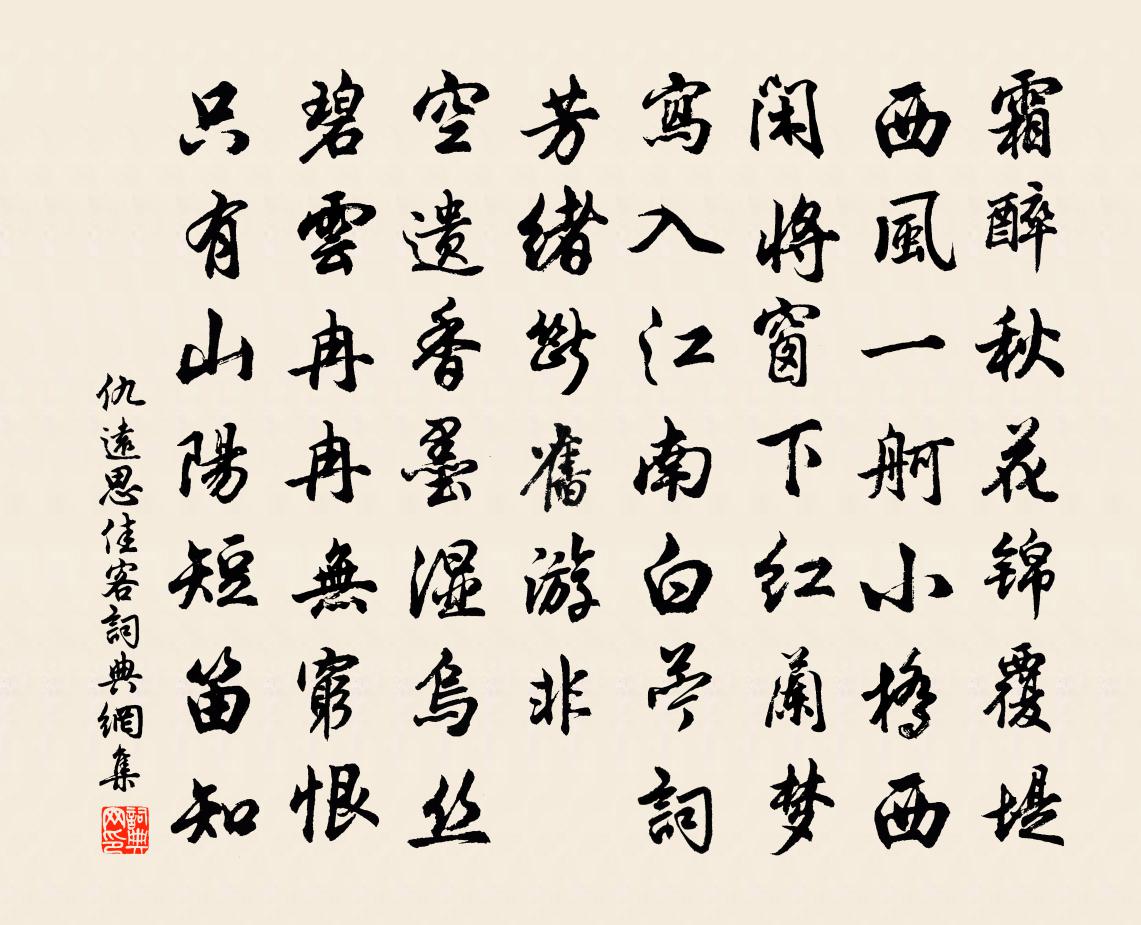 霜醉秋花锦覆堤
西風一舸小橋西
閑將窗下紅蘭梦
寫入江南白苧詞
芳緒斷舊游非
空遺香墨濕烏丝
碧雲冉冉無窮恨
只有山陽短笛知
仇遠思佳客詞典網集
詞典网印